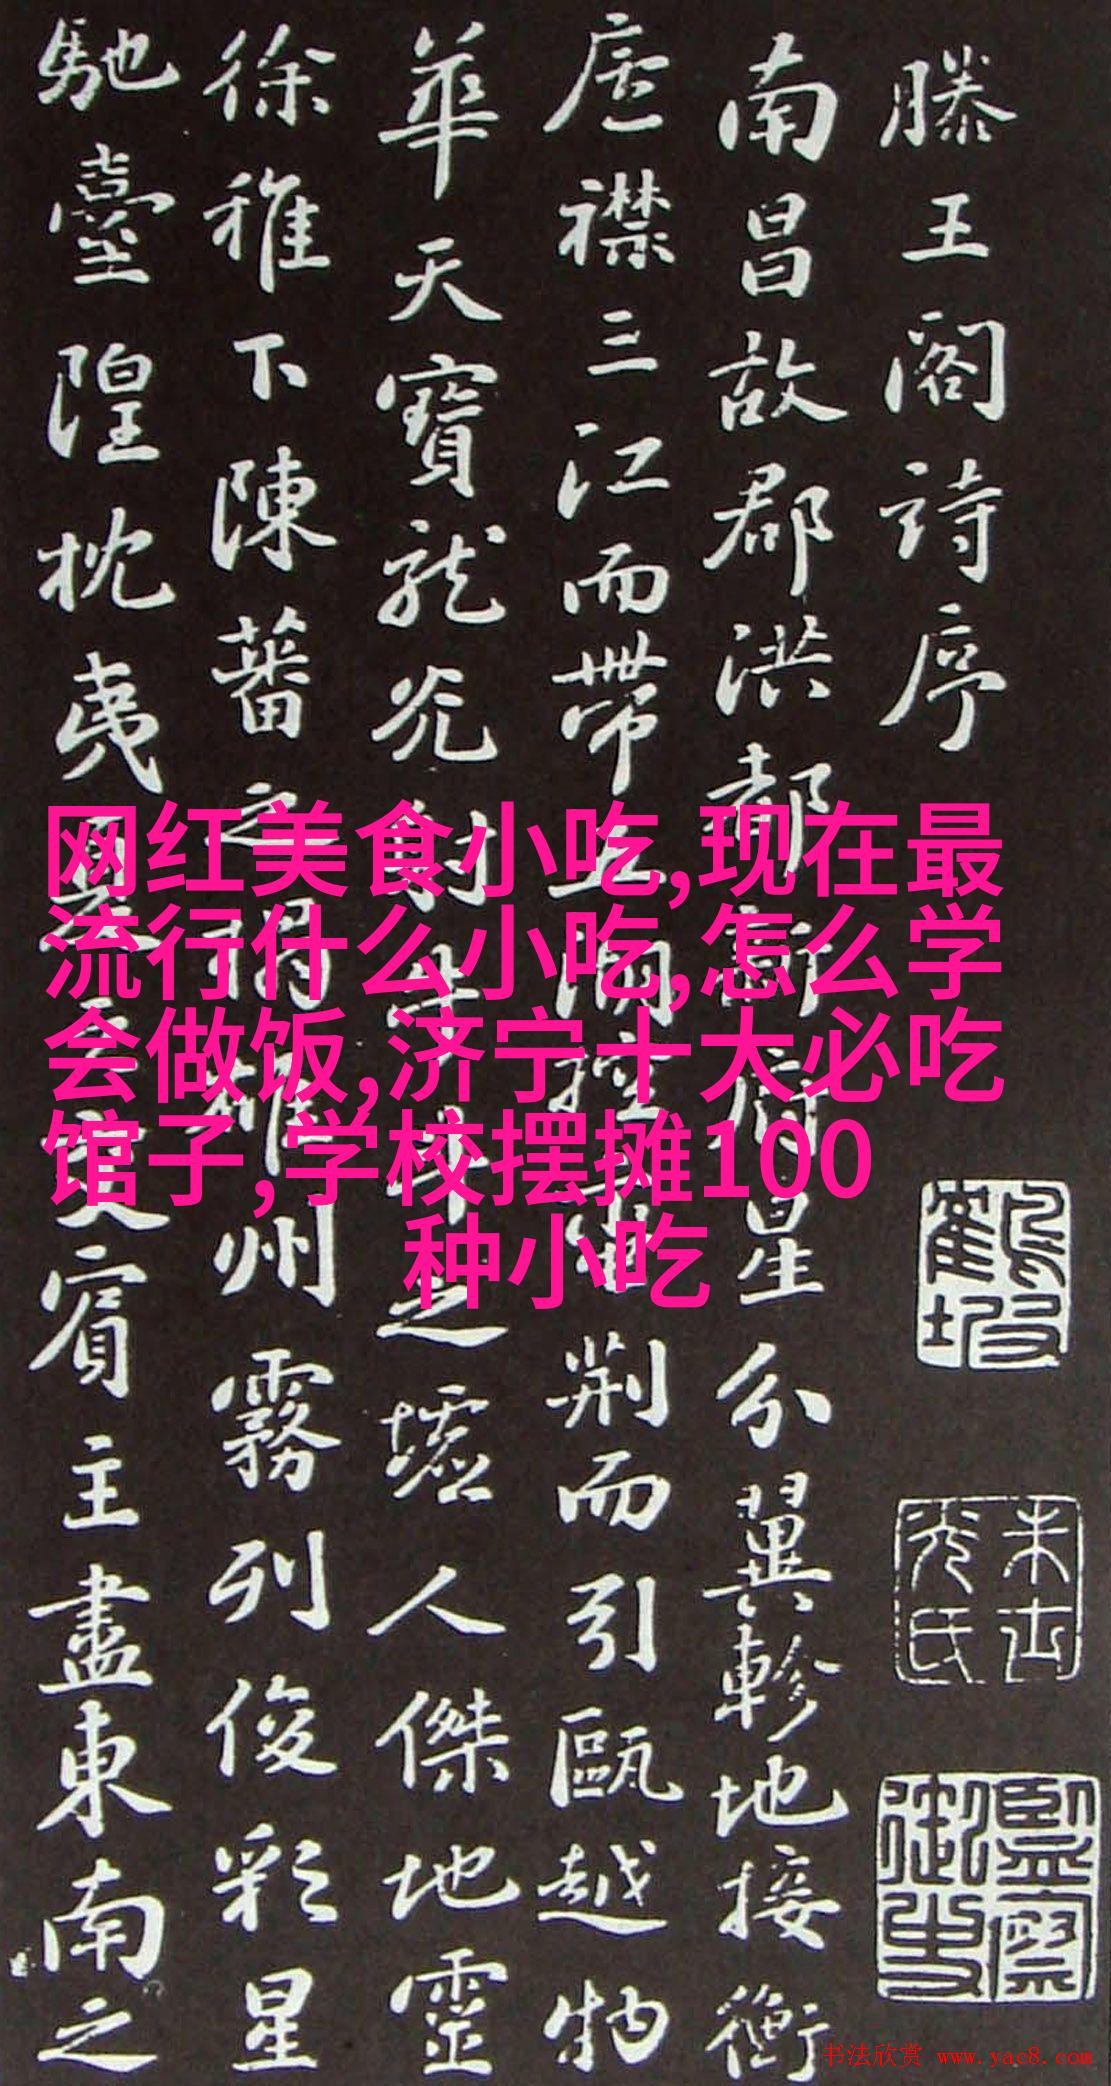 滕王閣詩序
南昌故郡洪都新府星分翼軫地接衡
廬襟三江而帶五湖控蠻荊而引甌越物
華天寶龍光射牛斗之墟人傑地靈
徐稚下陳蕃之榻雄州霧列俊彩星
馳臺隍枕夷夏之交賓主盡東南之
网红美食小吃,现在最
流行什么小吃,怎么学
会做饭,济宁十大必吃
馆子,学校摆摊100
种小吃
书法欣赏 www.yac8.com